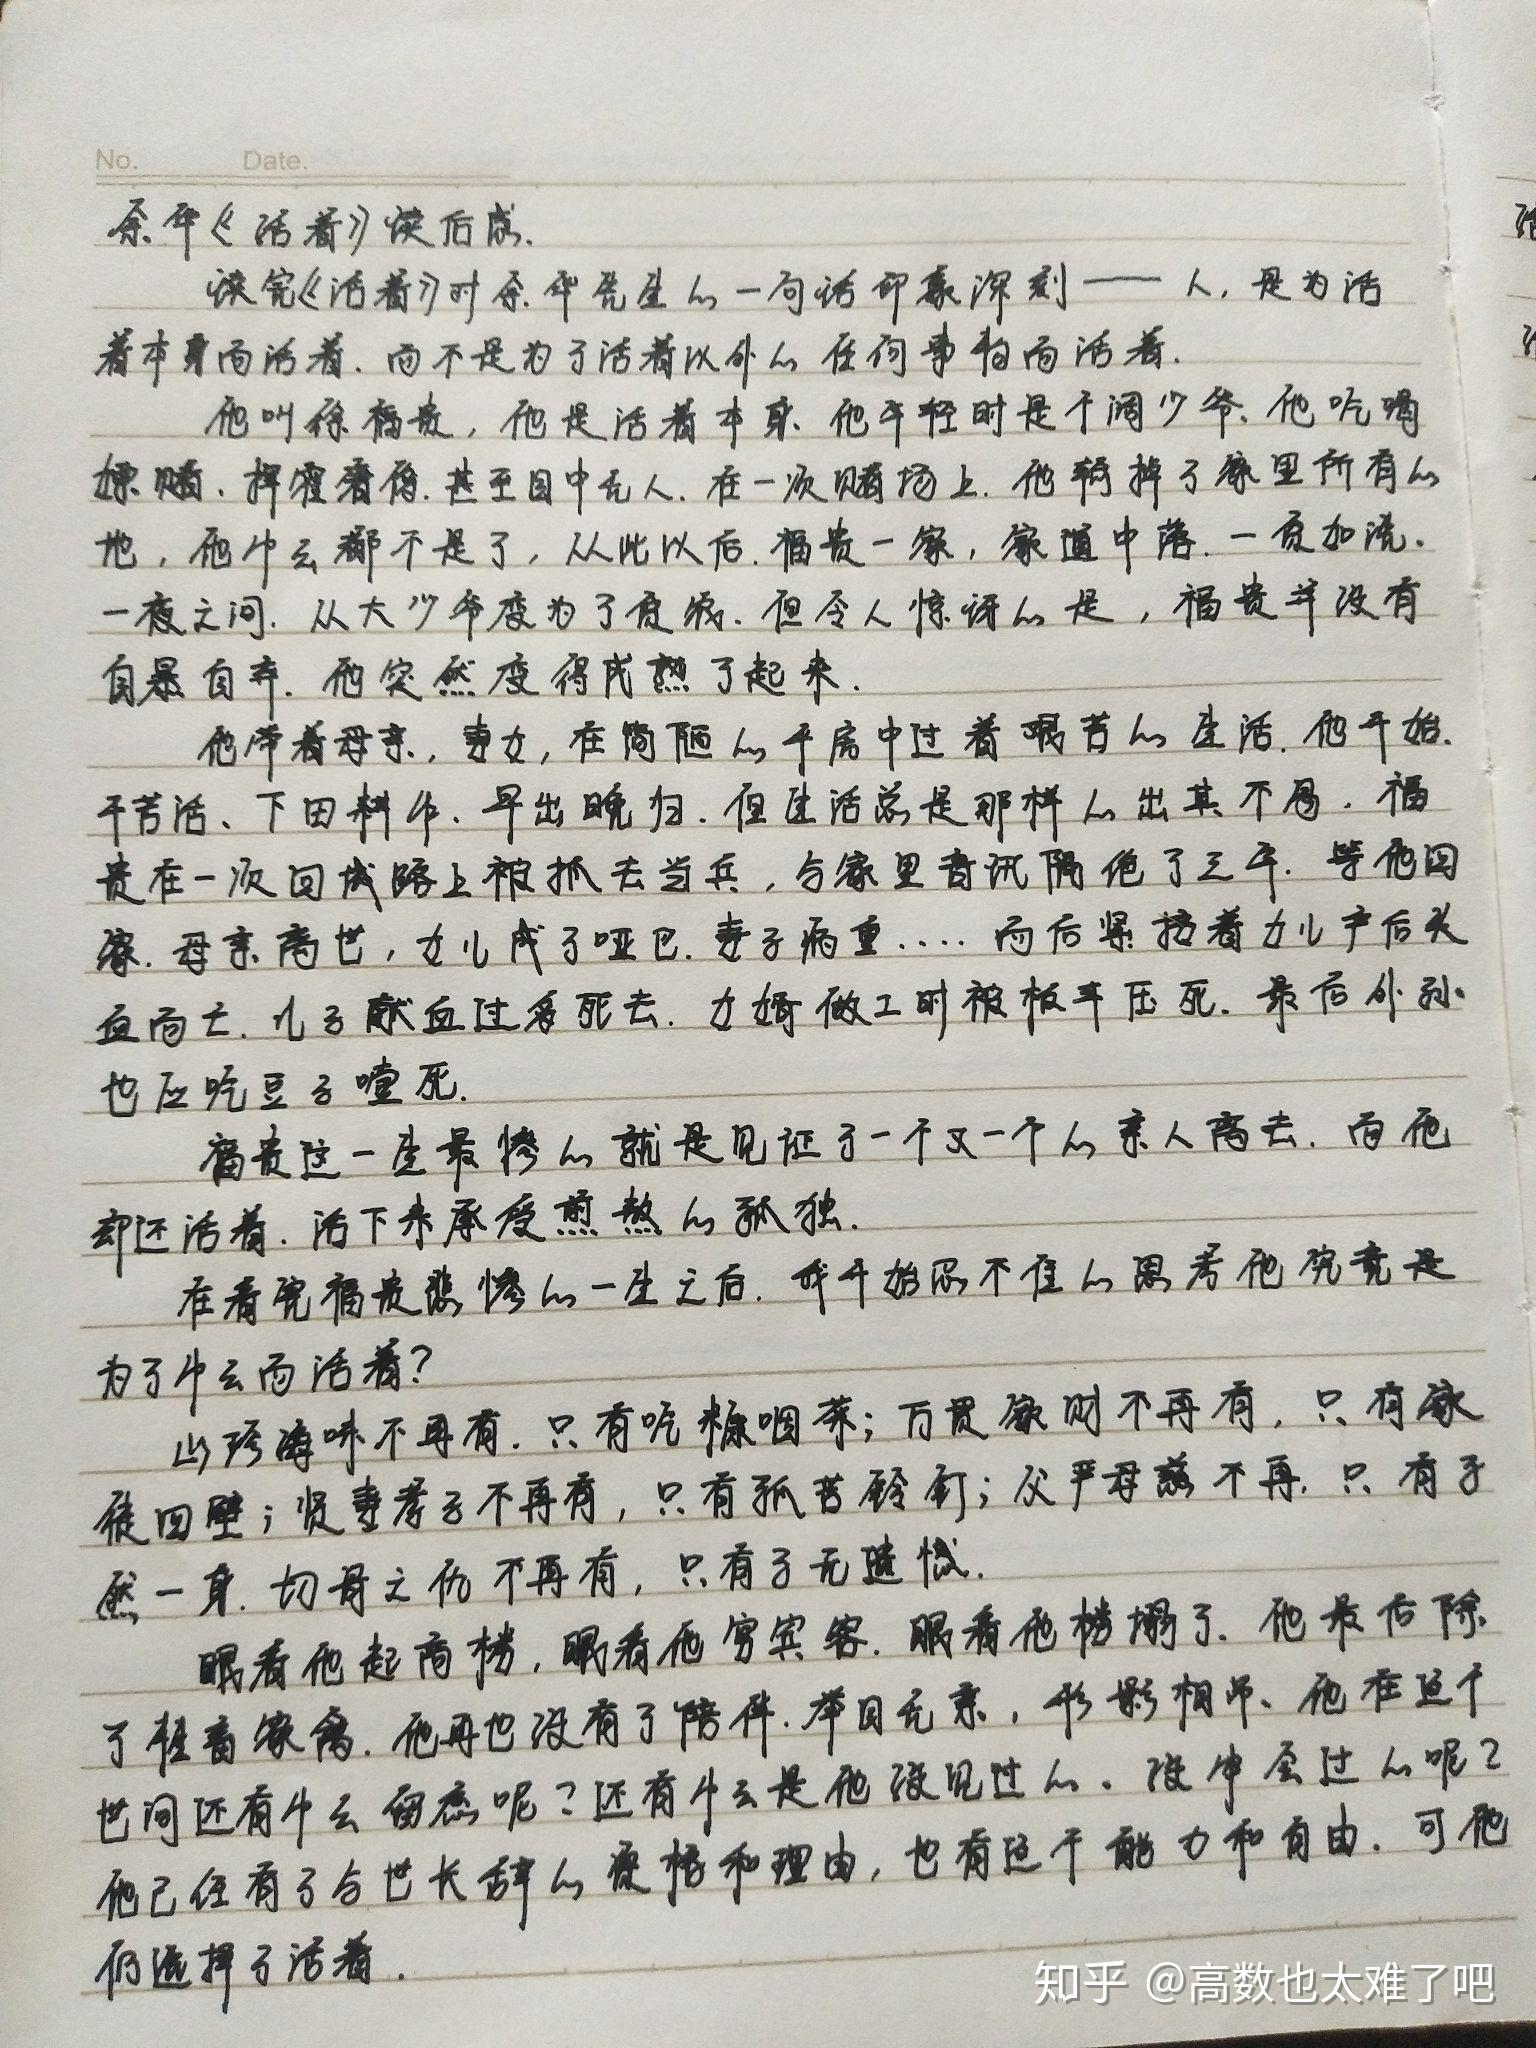 No. Date.
余华《活着》读后感.
读完《活着》时余华先生的一句话印象深刻——人,是为活
着本身而活着.而不是为了活着以外的任何事物而活着.
他叫徐福贵,他是活着本身.他年轻时是个阔少爷、他吃喝
嫖赌.挥霍奢侈.甚至目中无人.在一次赌场上.他输掉了家里所有的
地,他什么都不是了,从此以后.福贵一家,家道中落.一贫如洗.
一夜之间.从大少爷变为了贫农.但令人惊讶的是,福贵并没有
自暴自弃.他突然变得成熟了起来.
他带着母亲,妻女,在简陋的平房中过着艰苦的生活.他开始.
干苦活、下田耕作.早出晚归.但生活总是那样的出其不意.福
贵在一次回城路上被抓去当兵,与家里音讯隔绝了三年.等他回
家.母亲离世,女儿成了哑巴.妻子病重....而后紧接着女儿产后大
血而亡.儿子献血过多死去.女婿做工时被板车压死.最后外孙
也应吃豆子噎死.
福贵这一生最惨的就是见证了一个又一个的亲人离去.而他
却还活着.活下来承受煎熬的孤独.
在看完福贵悲惨的一生之后.我开始忍不住的思考他究竟是
为了什么而活着?
山珍海味不再有.只有吃糠咽菜;万贯家财不再有,只有家
徒四壁;贤妻孝子不再有,只有孤苦铃钉;父严母慈不再.只有孑
然一身.切骨之仇不再有,只有了无遗憾.
眼看他起高楼,眼看他宴宾客.眼看他楼塌了.他最后除
了牲畜家禽.他再也没有了陪伴.举目无亲,形影相吊、他在这个
世间还有什么留恋呢?还有什么是他没见过的.没体会过的呢?
他已经有了与世长辞的资格和理由,也有这个能力和自由.可他
仍选择了活着.
知乎 @高数也太难了吧